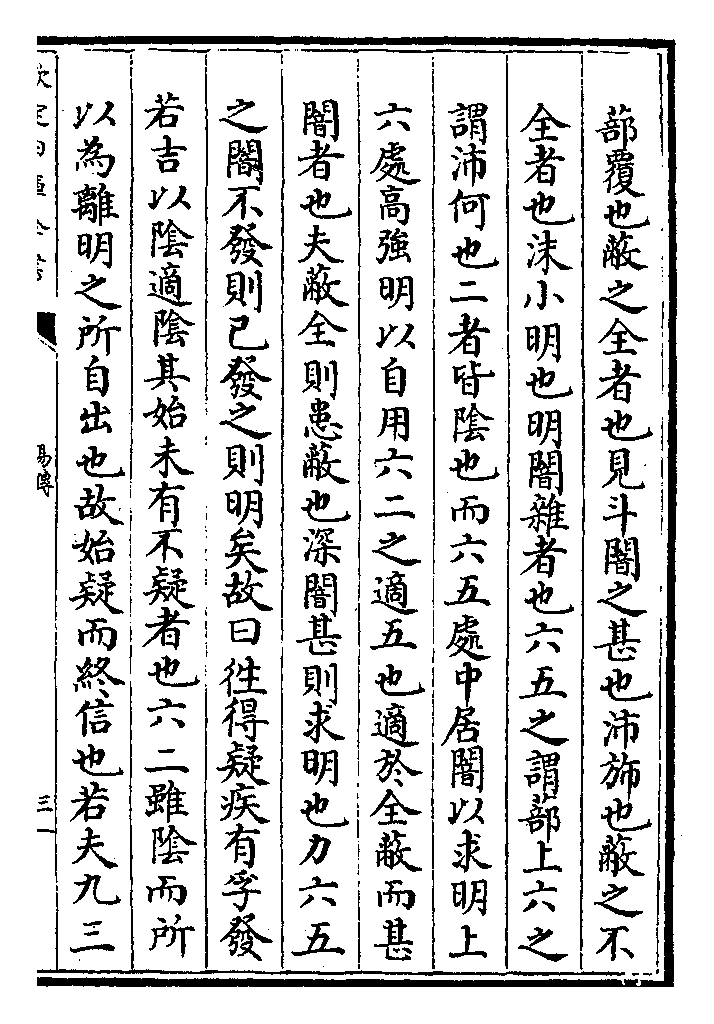 蔀覆也蔽之全者也見斗闇之甚也沛斾也蔽之不
全者也沬小明也明闇雜者也六五之謂蔀上六之
謂沛何也二者皆陰也而六五處中居闇以求明上
六處高強明以自用六二之適五也適於全蔽而甚
闇者也夫蔽全則患蔽也深闇甚則求明也力六五
之闇不發則已發之則明矣故曰徃得疑疾有孚發
若吉以陰適陰其始未有不疑者也六二雖陰而所
以為離明之所自出也故始疑而終信也若夫九三
欽定四庫全書
易傳
三